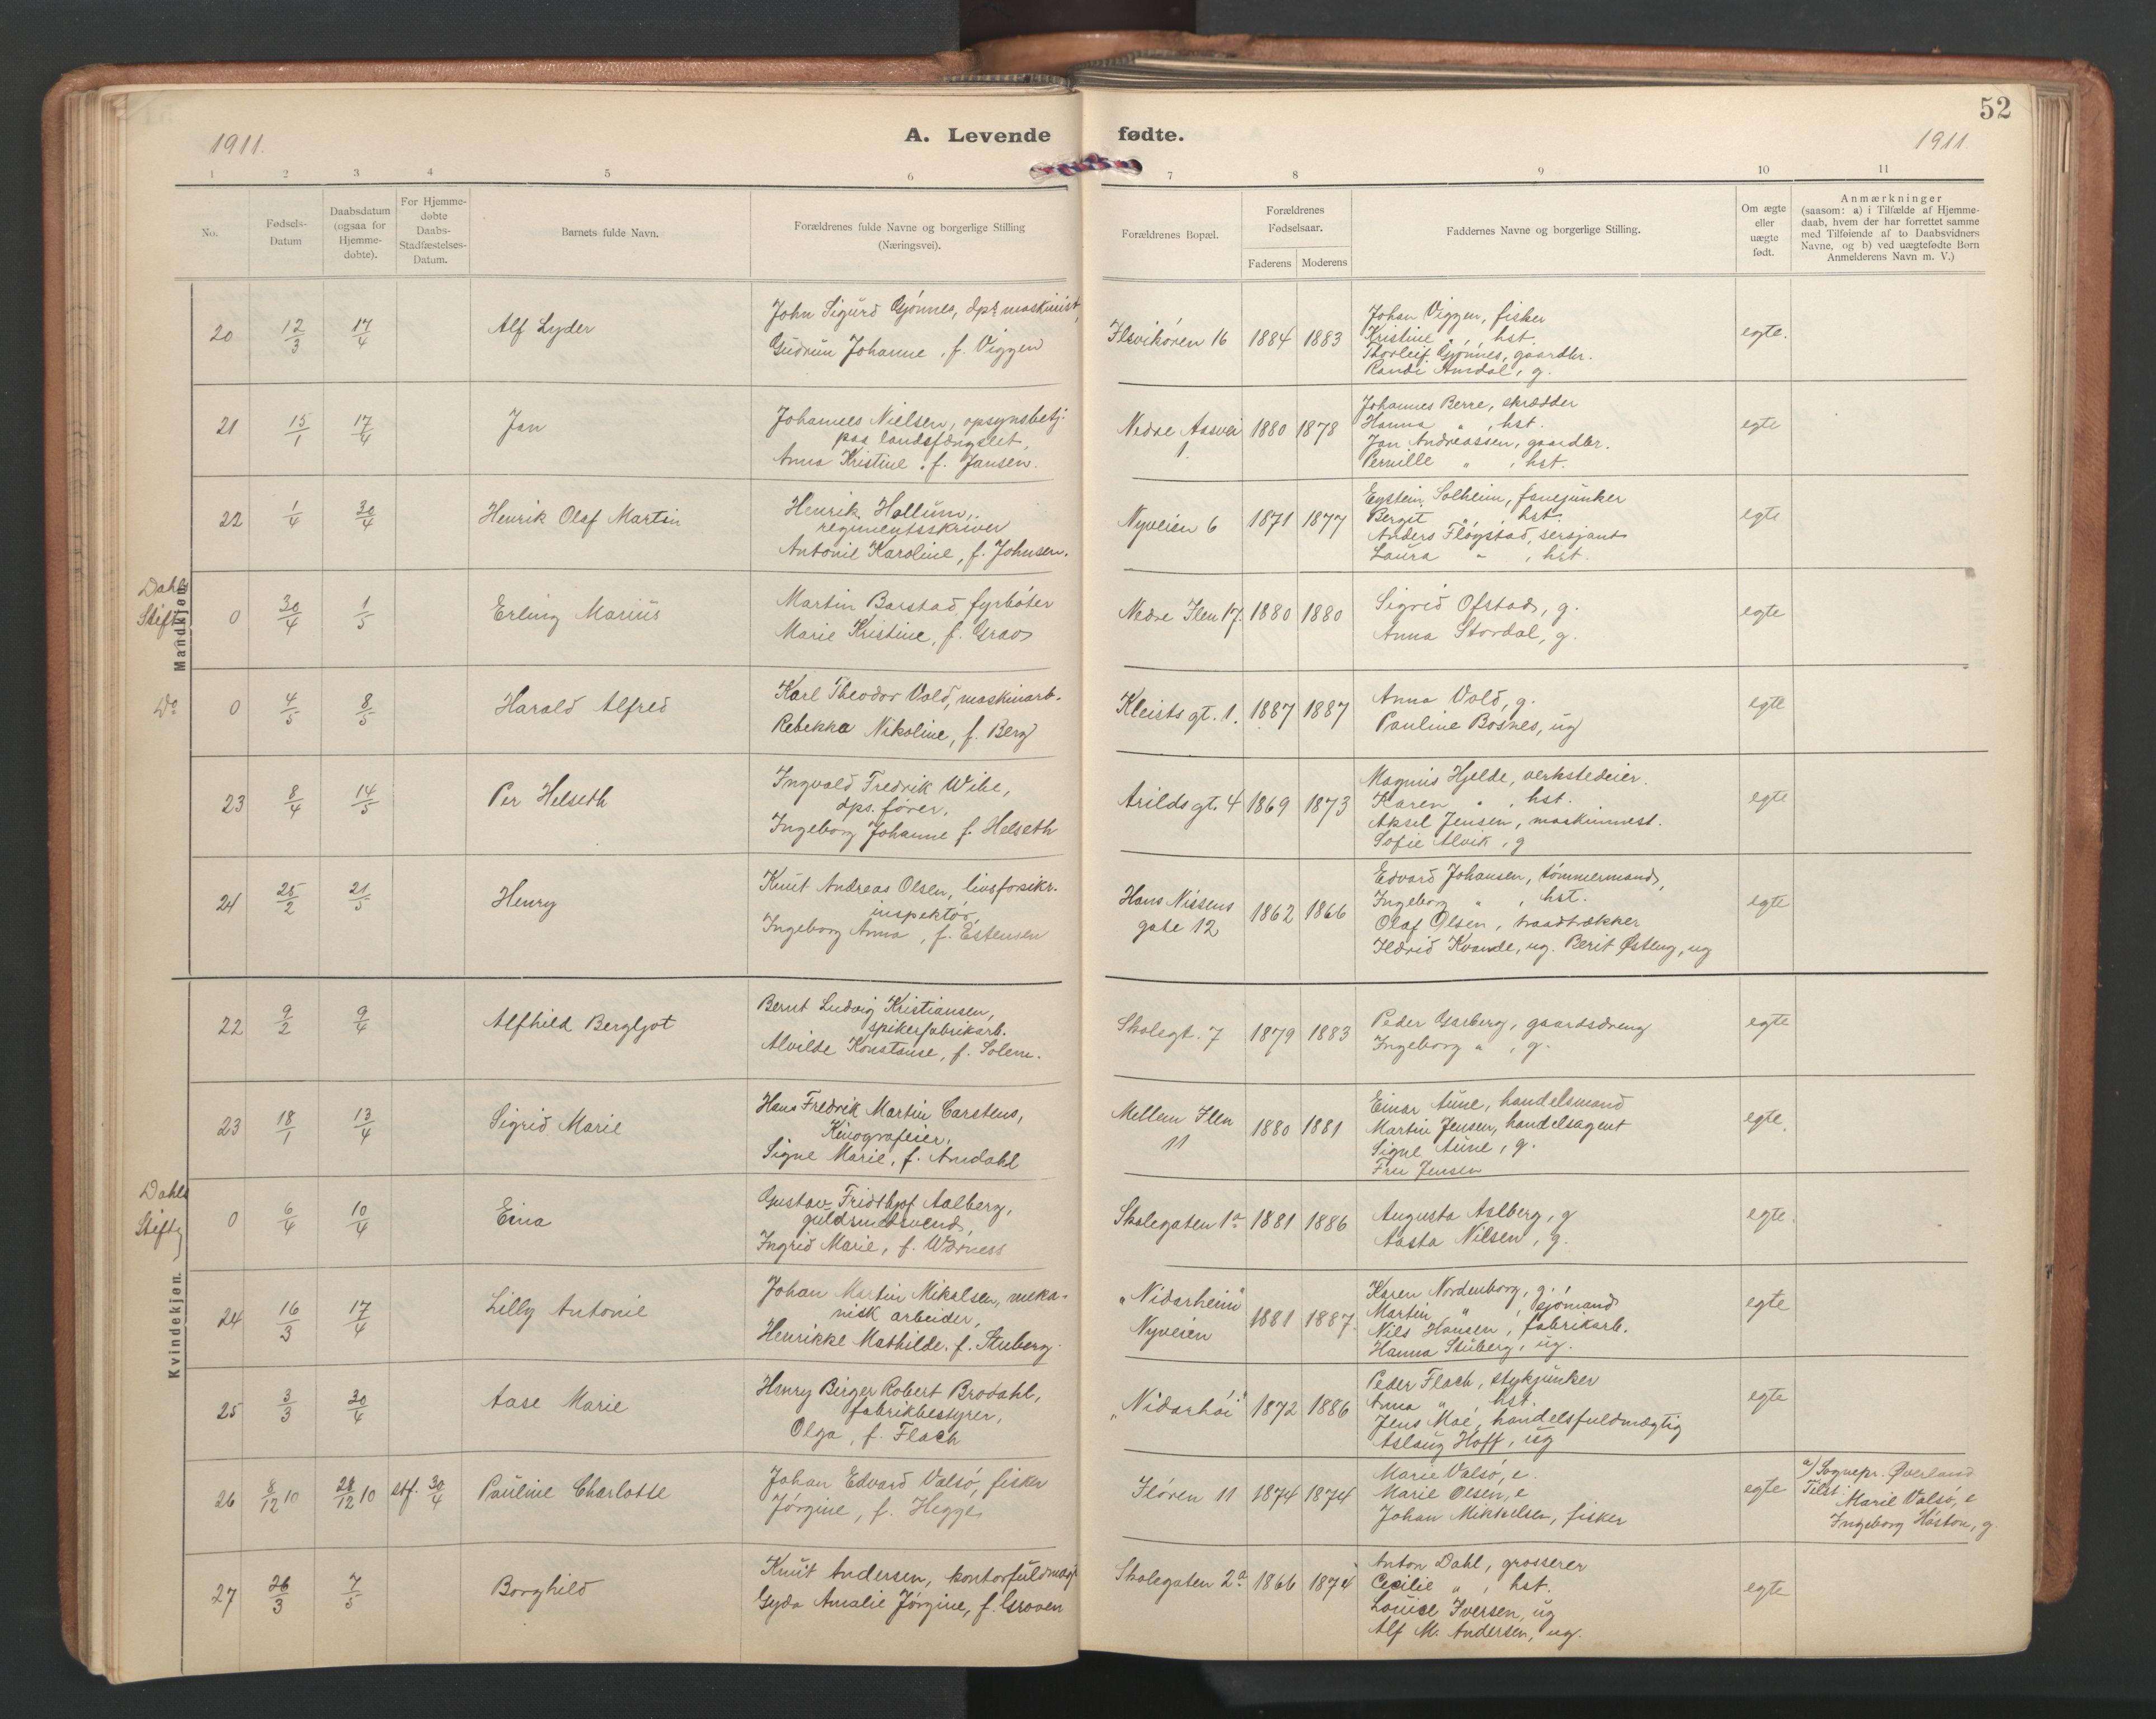 52
1911.
A. Levende fødte.
1911.
1 2 3 4 5 6 7 8 9 10 11
No.
Fødsels-
Datum
Daabsdatum
(ogsaa for
Hjemme-
døbte).
For Hjemme-
døbte
Daabs-
Stadfæstelses-
Datum.
Barnets fulde Navn.
Forældrenes fulde Navne og borgerlige Stilling
(Næringsvei).
Forældrenes Bopæl.
Forældrenes
Fødselsaar.
Faderens Moderens
Faddernes Navne og borgerlige Stilling.
Om ægte
eller
uægte
født.
Anmærkninger
(saasom: a) i Tilfælde af Hjemme-
daab, hvem der har forrettet samme
med Tilføiende af to Daabsvidners
Navne, og b) ved uægtefødte Børn
Anmelderens Navn m. V.)
Mandkjøn.
20 12/3 17/4 Alf Lyder
John Sigurd Gjönnes, dps maskinist,
Gudrun Johanne, f. Viggen
Ilsvikören 16 1884 1883
Johan Viggen, fisker
Kristine " , hst.
Thorleif Gjönnes, gaardbr.
Randi Amdal, g.
egte.
21 15/1 17/4 Jan
Johannes Nielsen, opsynsbetj.
paa landsfængslet,
Anna Kristine, f. Jansen.
Nedre Aasvei
1. 1880 1878
Johannes Berre, skrædder
Hanna " , hst.
Jan Andreassen, gaardbr.
Pernille " , hst.
egte
22 1/4 30/4 Henrik Olaf Martin
Henrik Hallum,
regimentsskriver
Antonie Karoline, f. Johnsen.
Nyveien 6 1871 1877
Eystein Solheim, fanejunker
Bergit " , hst.
Anders Flögstad, sersjant
Laura " , hst.
egte
Dahls
Stift.
0 30/4 1/5 Erling Marius
Martin Barstad, fyrböter
Marie Kristine, f. Graas
Nedre Ilen 17. 1880 1880
Sigrid Ofstad, g.
Anna Stordal, g.
egte
Do
0 4/5 8/5 Harald Alfred
Karl Theodor Vold, maskinarb.
Rebekka Nikoline, f. Berg
Kleists gt. 1. 1887 1887
Anna Vold, g.
Pauline Bosnes, ug
egte
23 8/4 14/5 Per Helseth
Ingvald Fredrik Wihe,
dps. förer,
Ingeborg Johanne f. Helseth
Arilds gt. 4 1869 1873
Magnus Hjelde, verkstedeier.
Karen " , hst.
Aksel Jensen, maskinmest.
Sofie Alvik, g
egte
24 25/2 21/5 Henry
Knut Andreas Olsen, livsforsikr.
inspektör,
Ingeborg Anna, f. Estensen
Hans Nissens
gate 12 1862 1866
Edvard Johansen, tömmermand,
Ingeborg " , hst.
Olaf Olsen, traadtrækker
Ildrid Kvande, ug. Berit Østeng, ug
egte
Kvindekjøn.
22 9/2 9/4 Alfhild Bergljot
Bernt Ludvig Kristiansen,
spikerfabrikarb.
Alvilde Konstanse, f. Solem.
Skolegt. 7 1879 1883
Peder Garberg, gaardsdreng
Ingeborg " , g.
egte
23 18/1 13/4 Sigrid Marie
Hans Fredrik Martin Carstens,
Kinografeier,
Signe Marie, f. Amdahl
Mellem Ilen
11 1880 1881
Einar Aune, handelsmand
Martin Jensen, handelsagent
Signe Aune, g.
Fru Jensen
egte.
Dahls
Stift.
0 6/4 10/4 Eina
Gustav Fridthjof Aalberg,
guldsmedsvend,
Ingrid Marie, f. Wærness
Skolegaten 1a 1881 1886
Augusta Aalberg, g
Aasta Nilsen, g.
egte.
24 16/3 17/4 Lilly Antonie
Johan Martin Mikalsen, meka-
nisk arbeider,
Henrikke Mathilde, f. Stuberg.
"Nidarheim"
Nyveien 1881 1887.
Karen Nordenborg, g.
Martin " , sjömand
Nils Hansen, fabrikarb.
Hanna Stuberg, ug.
egte
25 3/3 30/4 Aase Marie
Henry Birger Robert Brodahl,
fabrikbestyrer,
Olga, f. Flach
"Nidarhöi" 1872 1886
Peder Flach, stykjunker
Anna " , hst.
Jens Moe, handelsfuldmægtig
Aslaug Hoff, ug
egte
26 8/12 10 28/12 10 stf. 30/4 Pauline Charlotte
Johan Edvard Valsö, fisker
Jörgine, f. Hegge
Ilören 11 1874 1874
Marie Valsö, e.
Marie Olsen, e
Johan Mikkelsen, fisker
egte
a) Sognepr. Øverland
Tilst.:
Marie Valsö, e
Ingeborg Haston, g.
27 26/3 7/5 Borghild
Knut Andersen, kontorfuldmægt
Gyda Amalie Jörgine, f. Groven
Skolegaten 2a 1866 1874
Anton Dahl, grosserer
Cecilie " , hst.
Louise Iversen, ug
Alf M. Andersen, ug.
egte